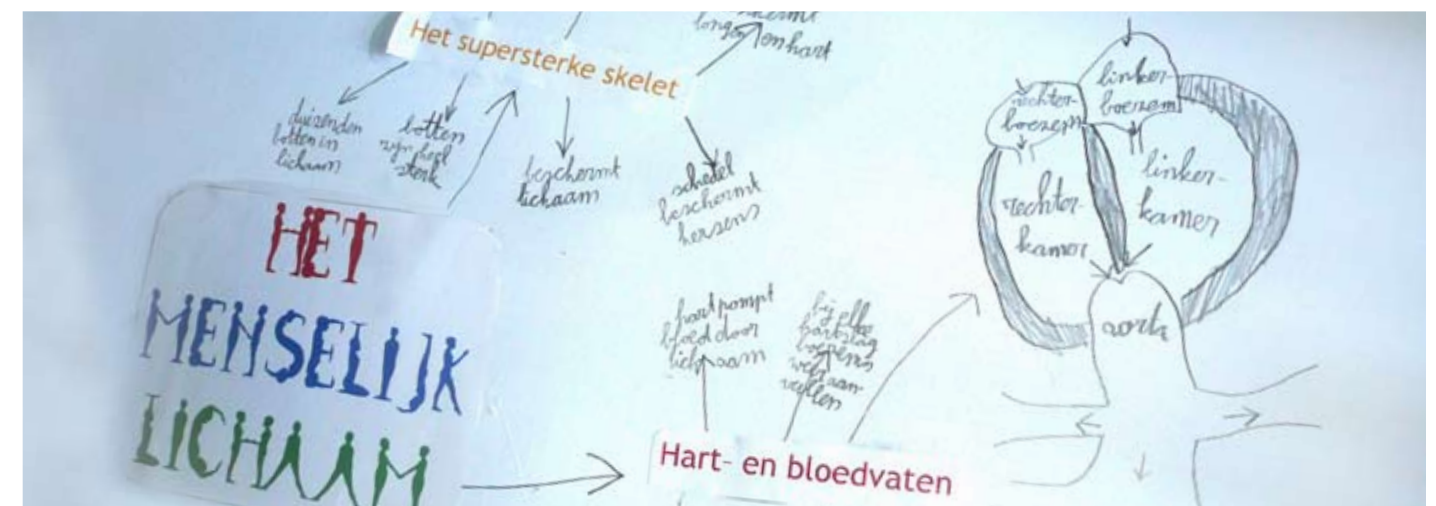 Het supersterke skelet
longen en hart
duizenden
botten in
lichaam
botten
zijn heel
sterk
beschermt
lichaam
schedel
beschermt
hersens
HET
MENSELIJK
LICHAAM
hart pompt
bloed door
lichaam
bij elke
hartslag
boezems
vullen
Hart- en bloedvaten
linker-
boezem
rechter-
boezem
linker-
kamer
rechter-
kamer
aorta